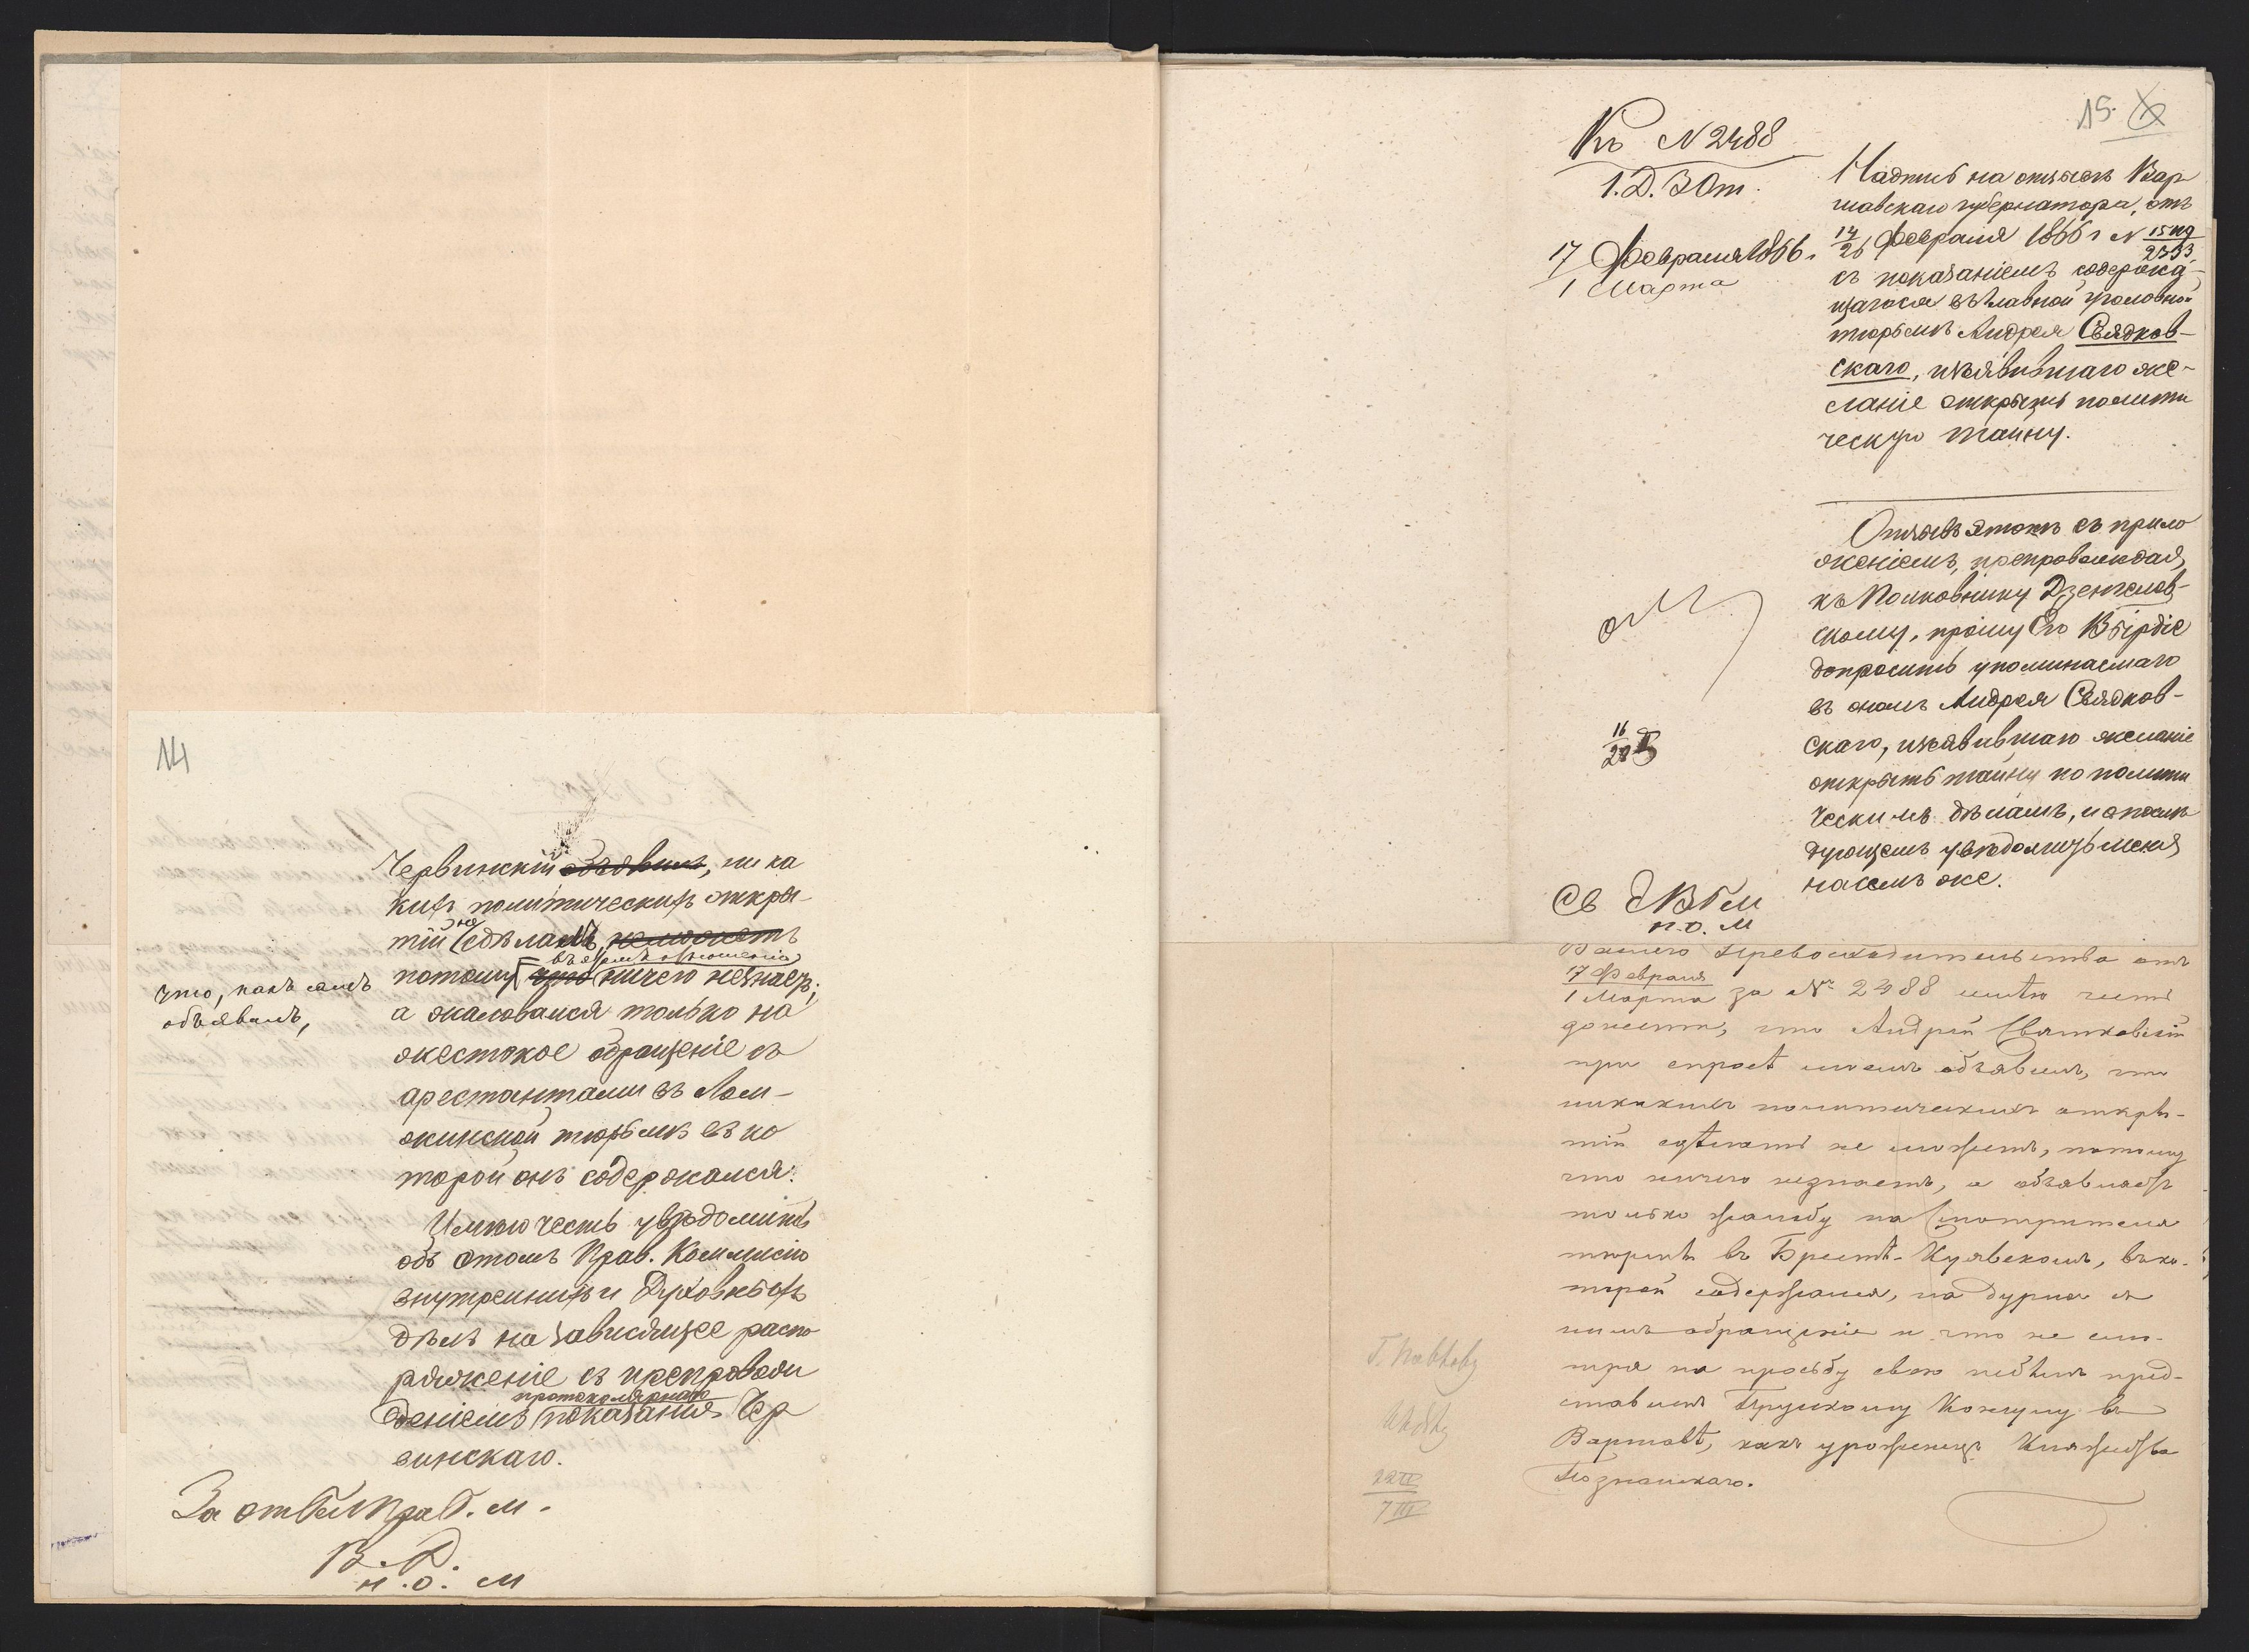 14
Червинскій объявилъ, ника
кихъ политическихъ откры-
тій не сдѣлалъ, не можетъ
потому что въ этомъ отношеніи ничего незнаетъ;
что, какъ самъ
объявилъ,
а жаловался только на
жестокое обращеніе съ
арестантами въ Лом-
жинской тюрьмѣ въ ко
торой онъ содержался.
Имѣю честь увѣдомить
объ этомъ Прав. Коммисію
внутреннихъ и Духовныхъ
дѣлъ на зависящее распо
ряженіе съ препровож
деніемъ протокольнаго показанія Чер
винскаго.
За
В. Р.
н. о. М
15.
Къ N 2488
1. Д. 3 От.
17 Февраля 1866.
1 Марта
Надпись на отзывѣ Вар
шавскаго губернатора, отъ
14/26 Февраля 1866 г N
съ показаніемъ содержа-
щагося въ главной уголовной
тюрьмѣ Андрея Свядков-
скаго, изъявившаго же-
ланіе открыть полити
ческую тайну.
Отзывъ этотъ съ прило
женіемъ, препровождая,
къ Полковнику Дзенгелов-
скому, прошу Его Вбірдіе
допросить упоминаемаго
въ ономъ Андрея Свядков-
скаго, изъявившаго желаніе
открыть тайну по полити
ческимъ дѣламъ, и о послѣ
дующемъ увѣдомить меня
насемъ же.
16
28
Св
н. о. М
Вашего Превосходительства отъ
17 Февраля
1 Марта за № 2488 имѣю честь
донести, что Андрей Святковскій
при спросѣ мною объявилъ, что
никакихъ политическихъ откры-
тій сдѣлать не можетъ, потому
что ничего незнаетъ, а объявляетъ
только жалобу на Смотрителя
тюрьмы въ Брестѣ-Куявскомъ, въ ко-
торой содержался, на дурное съ
нимъ обращеніе и что не смо-
тря на просьбу свою небылъ пред-
ставленъ Прускому Консулу въ
Варшавѣ, какъ уроженецъ Княжества
Познанскаго.
22 II
7 III